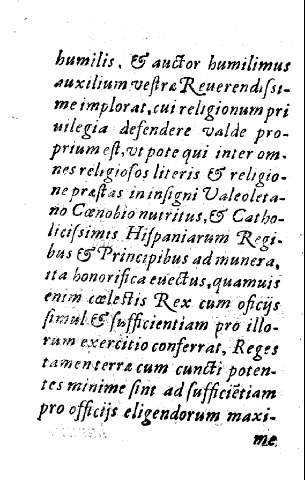 humilis, & auctor humilimus
auxilium vestræ Reuerendissi-
me implorat, cui religionum pri
uilegia defendere valde pro-
prium est, vt pote qui inter om-
nes religiosos literis & religio-
ne præstas in insigni Valeoleta-
no Cœnobio nutritus, & Catho-
licissimis Hispaniarum Regi-
bus & Principibus ad munera,
ita honorifica euectus, quamuis
enim cœlestis Rex cum oficijs
simul & sufficientiam pro illo-
rum exercitio conferrat, Reges
tamen terræ cum cuncti poten-
tes minime sint ad sufficiẽtiam
pro officijs eligendorum maxi-
me